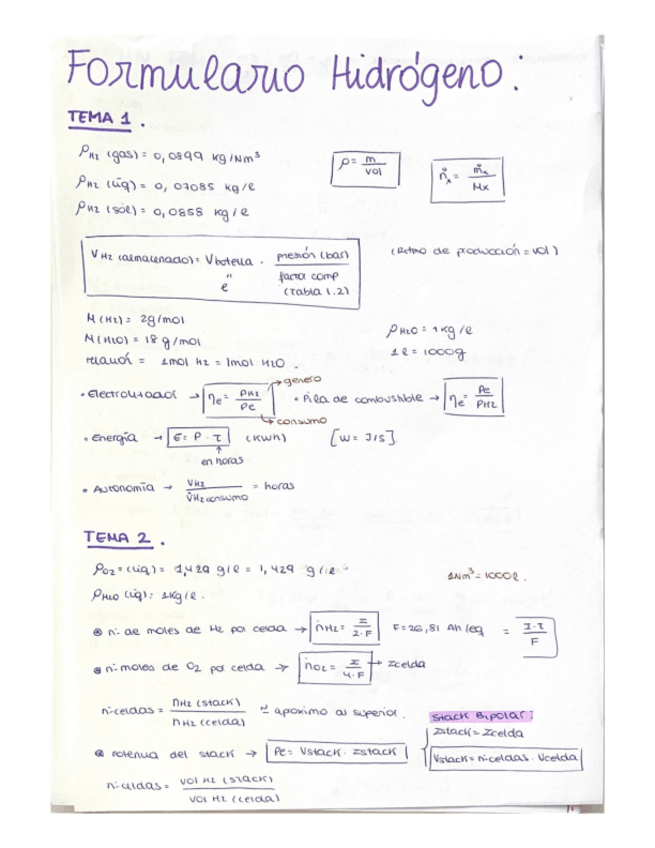 Formulario Hidrógeno.
TEMA 1.
ρH2 (gas) = 0,0899 kg/Nm³
ρ = m/vol
ṅx = ṁx/Mx
ρH2 (líq) = 0,07085 kg/l
ρH2 (sól) = 0,0858 kg/l
VH2 (almacenado) = Vbotella · presión (bar) / factor comp (tabla 1.2)
" l
(Ritmo de producción = vol)
M(H2) = 2g/mol
M(H2O) = 18 g/mol
ρH2O = 1kg/l
1l = 1000g
relación = 1mol H2 = 1mol H2O.
• Electrolizador → ηe = PH2/Pe → genero → consumo
• Pila de combustible → ηe = Pe/PH2
• Energía → E = P · τ (kWh) [W = J/s]
↑ en horas
• Autonomía → VH2 / V̇H2 consumo = horas
TEMA 2.
ρO2 = (líq) = 1,429 g/l = 1,429 g/l
1Nm³ = 1000l.
ρH2O (líq) = 1kg/l.
⊗ n: de moles de H2 por celda → ṅH2 = I/2·F F = 26,81 Ah/eq = I·τ/F
⊗ n: moles de O2 por celda → ṅO2 = I/4·F → Icelda
n:celdas = ṅH2 (stack) / ṅH2 (celda) ≃ aproximo al superior.
Stack Bipolar:
Istack = Icelda
⊗ Potencia del stack → Pe = Vstack · Istack
Vstack = n:celdas · Vcelda
n:celdas = vol H2 (stack) / vol H2 (celda)